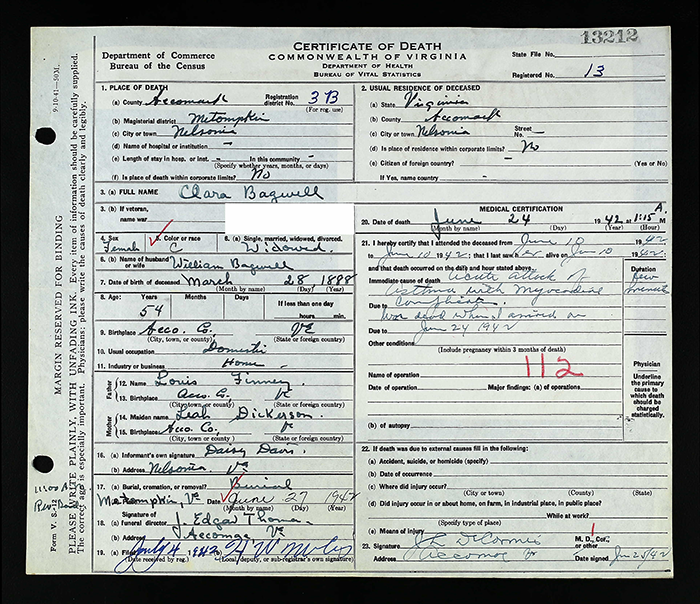 13212
CERTIFICATE OF DEATH
COMMONWEALTH OF VIRGINIA
DEPARTMENT OF HEALTH
BUREAU OF VITAL STATISTICS
Department of Commerce
Bureau of the Census
State File No.
Registered No. 13
9-10-41—50M.
MARGIN RESERVED FOR BINDING
PLEASE WRITE PLAINLY, WITH UNFADING INK. Every item of information should be carefully supplied.
The correct age is especially important. Physicians: please write the causes of death clearly and legibly.
Form V. S.-12
1. PLACE OF DEATH
(a) County Accomack Registration district No. 3 B
(For reg. use)
(b) Magisterial district Metompkin
(c) City or town Nelsonia
(d) Name of hospital or institution -
(e) Length of stay in hosp. or inst. - In this community -
(Specify whether years, months, or days)
(f) Is place of death within corporate limits? No
2. USUAL RESIDENCE OF DECEASED
(a) State Virginia
(b) County Accomack
(c) City or town Nelsonia Street No. -
(d) Is place of residence within corporate limits? No
(e) Citizen of foreign country? - (Yes or No)
If Yes, name country -
3. (a) FULL NAME Clara Bagwell
3. (b) If veteran,
name war
4. Sex Female
5. Color or race C
6. (a) Single, married, widowed, divorced. Widowed
6. (b) Name of husband or wife William Bagwell
7. Date of birth of deceased March 28 1888
(Month by name) (Day) (Year)
8. Age: Years 54 Months Days If less than one day
hours min.
9. Birthplace Acco. Co. Va
(City, town, or county) (State or foreign country)
10. Usual occupation Domestic
11. Industry or business Home
Father
12. Name Louis Finney
13. Birthplace Acco. Co. Va
(City, town or county) (State or foreign country)
Mother
14. Maiden name Leah Dickerson
15. Birthplace Acco. Co. Va
(City, town or county) (State or foreign country)
16. (a) Informant's own signature Daisy Davis
(b) Address Nelsonia, Va
17. (a) Burial, cremation, or removal? Burial
Metompkin, Va Date June 27 1942
(Month by name) (Day) (Year)
18. (a) Signature of funeral director J. Edgar Thomas
(b) Address Accomac Va
19. (a) Filed July 4 1942
(Date received by reg.) (Local deputy, or sub-registrar's own signature)
MEDICAL CERTIFICATION
20. Date of death June 24 1942 at 1:15 A.M.
(Month by name) (Day) (Year) (Hour)
21. I hereby certify that I attended the deceased from June 10 1942
to June 10 1942; that I last saw her alive on Jun 10 1942
and that death occurred on the date and hour stated above. Duration
Immediate cause of death Acute attack of few
Asthma with Myocardial
Due to
was dead when I arrived on
Due to Jun 24 1942
Other conditions
(Include pregnancy within 3 months of death)
112
Name of operation
Date of operation Major findings: (a) of operations
(b) of autopsy
Physician
Underline
the primary
cause to
which death
should be
charged
statistically.
22. If death was due to external causes fill in the following:
(a) Accident, suicide, or homicide (specify)
(b) Date of occurrence
(c) Where did injury occur?
(City or town) (County) (State)
(d) Did injury occur in or about home, on farm, in industrial place, in public place?
While at work?
(Specify type of place)
(e) Means of injury 1
M. D., Cor.,
or other
23. Signature
Address Accomac Va Date signed Jun 25/42